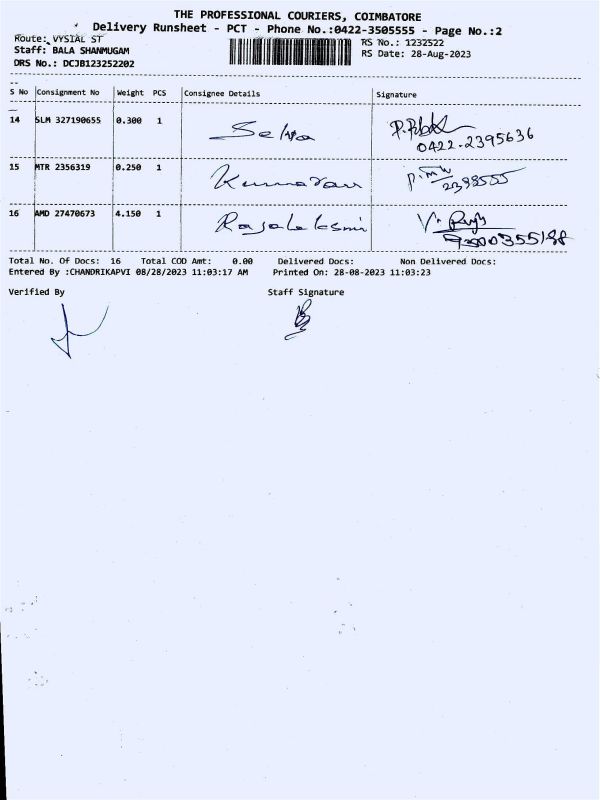 THE PROFESSIONAL COURIERS, COIMBATORE
Delivery Runsheet - PCT - Phone No.:0422-3505555 - Page No.:2
Route: VYSIAL ST RS No.: 1232522
Staff: BALA SHANMUGAM RS Date: 28-Aug-2023
DRS No.: DCJB123252202
S No Consignment No Weight PCS Consignee Details Signature
14 SLM 327190655 0.300 1 Selva
0422-2395636
15 MTR 2356319 0.250 1 Kumaran
2398555
16 AMD 27470673 4.150 1 Rajalaksmi
Total No. Of Docs: 16 Total COD Amt: 0.00 Delivered Docs: Non Delivered Docs:
Entered By :CHANDRIKAPVI 08/28/2023 11:03:17 AM Printed On: 28-08-2023 11:03:23
Verified By Staff Signature